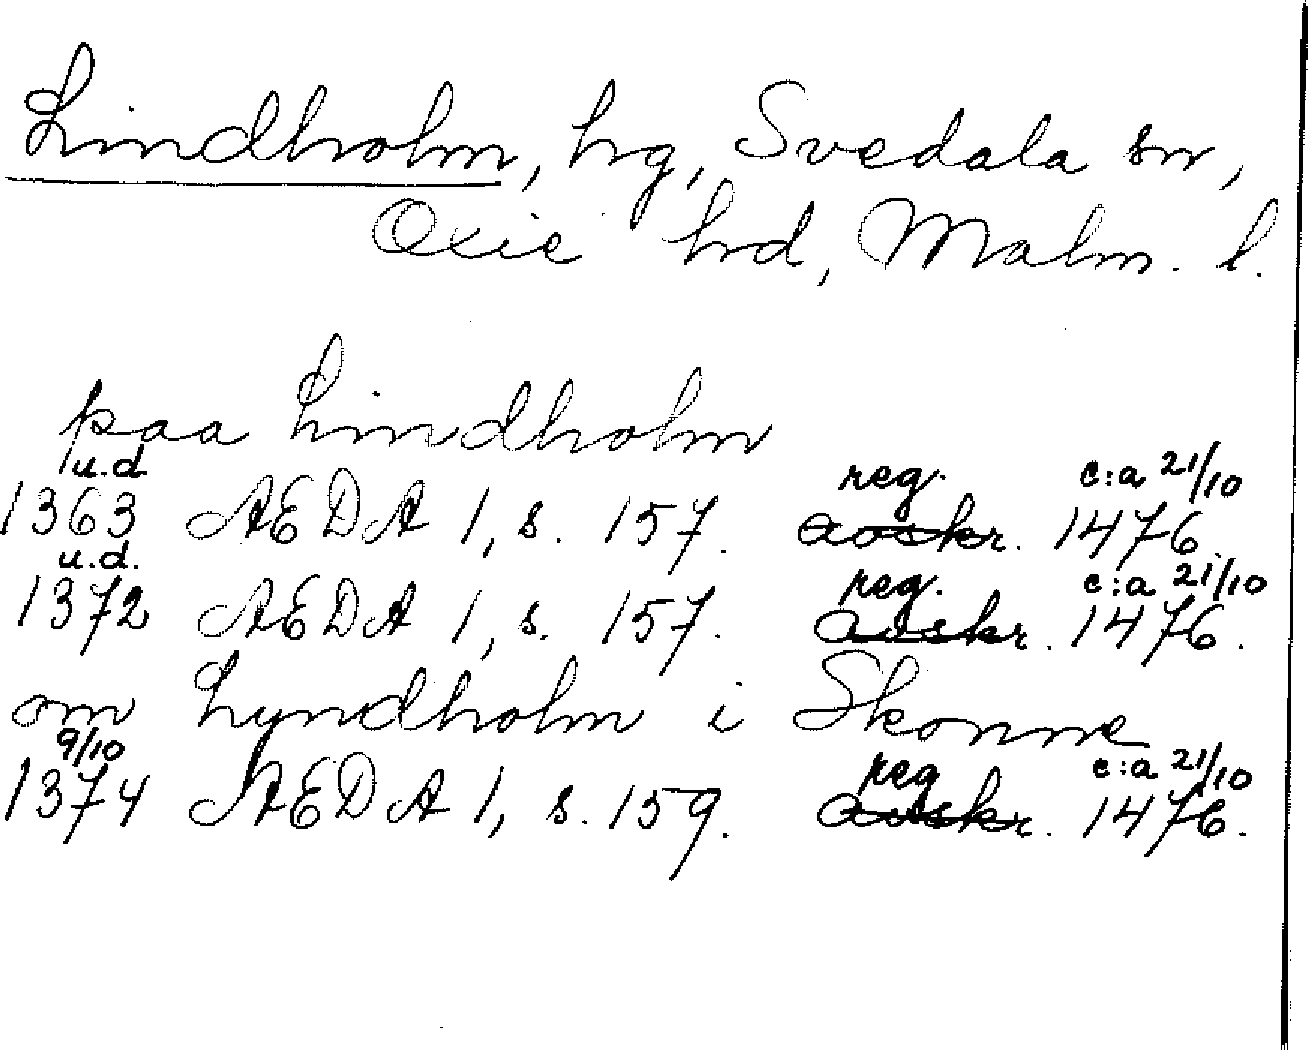 Lindholm, hg, Svedala sn,
Oxie hrd, Malm. l.
paa Lindholm
u.d reg. c:a 21/10
1363 AEDA 1, s. 157. avskr. 1476.
u.d. reg. c:a 21/10
1372 AEDA 1, s. 157. avskr. 1476.
om Lyndholm i Skonne
9/10 reg c:a 21/10
1374 AEDA 1, s. 159. avskr. 1476.